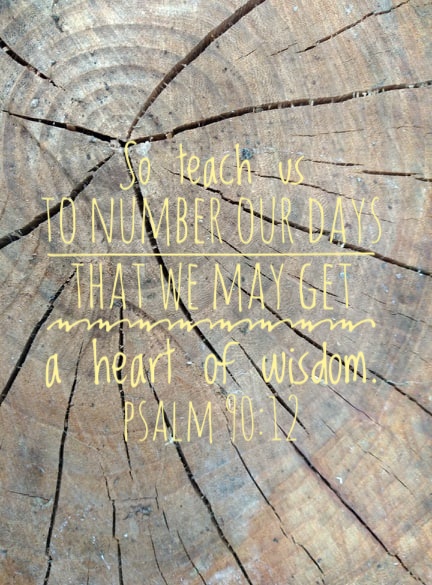 So teach us
TO NUMBER OUR DAYS
THAT WE MAY GET
a heart of wisdom.
PSALM 90:12